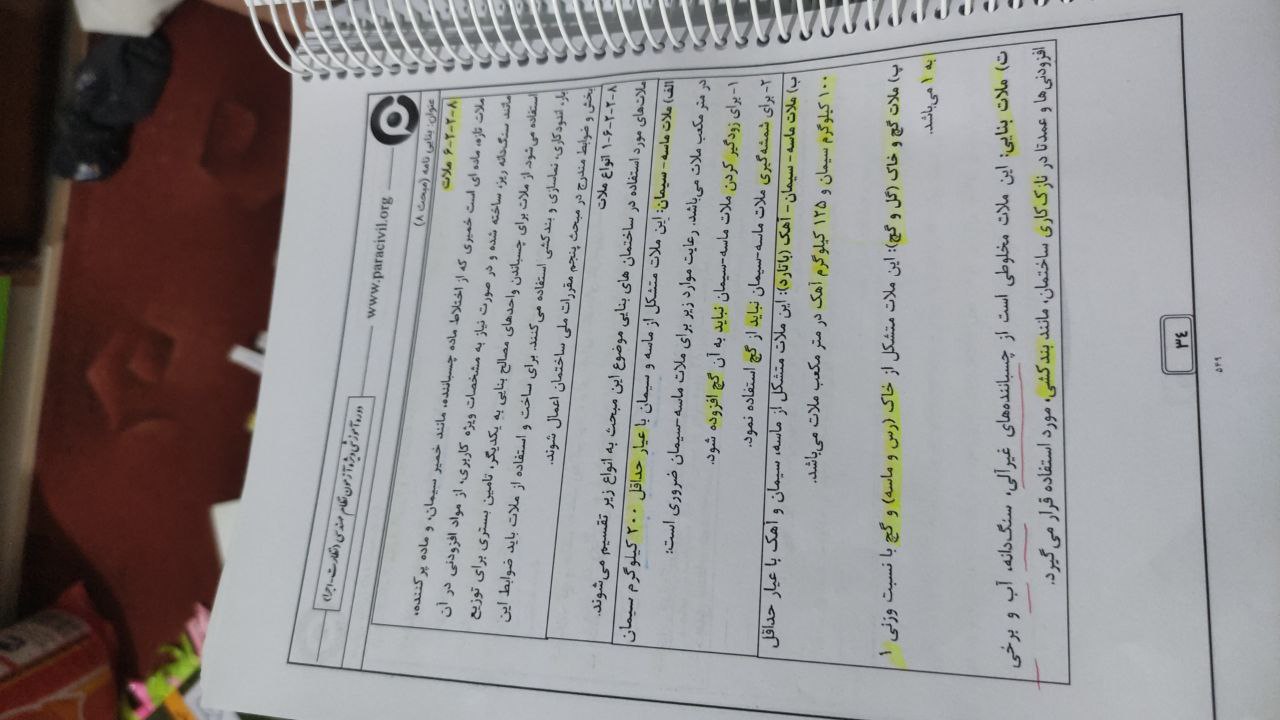 دوره آموزشی ویژه آزمون نظام مهندسی (نظارت-اجرا)
www.paracivil.org
عنوان: بنایی نامه (مبحث ۸)
۸-۲-۲-۶ ملات
ملات تازه، ماده ای است خمیری که از اختلاط ماده چسباننده، مانند خمیر سیمان، و ماده پرکننده،
مانند سنگدانه ریز، ساخته شده و در صورت نیاز به مشخصات ویژه کاربری، از مواد افزودنی در آن
استفاده می‌شود. از ملات برای چسباندن واحدهای مصالح بنایی به یکدیگر، تامین بستری برای توزیع
بار، اندودکاری، نماسازی و بندکشی استفاده می کنند. برای ساخت و استفاده از ملات باید ضوابط این
بخش و ضوابط مندرج در مبحث پنجم مقررات ملی ساختمان اعمال شوند.
۸-۲-۲-۶-۱ انواع ملات
ملات‌های مورد استفاده در ساختمان های بنایی موضوع این مبحث به انواع زیر تقسیم می‌شوند.
الف) ملات ماسه- سیمان: این ملات متشکل از ماسه و سیمان با عیار حداقل ۲۰۰ کیلوگرم سیمان
در متر مکعب ملات می‌باشد. رعایت موارد زیر برای ملات ماسه-سیمان ضروری است:
۱- برای زودگیر کردن ملات ماسه-سیمان نباید به آن گچ افزوده شود.
۲- برای شمشه‌گیری ملات ماسه-سیمان نباید از گچ استفاده نمود.
ب) ملات ماسه- سیمان- آهک (باتارد): این ملات متشکل از ماسه، سیمان و آهک با عیار حداقل
۱۰۰ کیلوگرم سیمان و ۱۲۵ کیلوگرم آهک در متر مکعب ملات می‌باشد.
پ) ملات گچ و خاک (گل و گچ): این ملات متشکل از خاک (رس و ماسه) و گچ با نسبت وزنی ۱
به ۱ می‌باشد.
ت) ملات بنایی: این ملات مخلوطی است از چسباننده‌های غیرآلی، سنگ‌دانه، آب و برخی
افزودنی‌ها و عمدتا در نازک‌کاری ساختمان، مانند بندکشی، مورد استفاده قرار می گیرد.
۳۴
۵۴۹